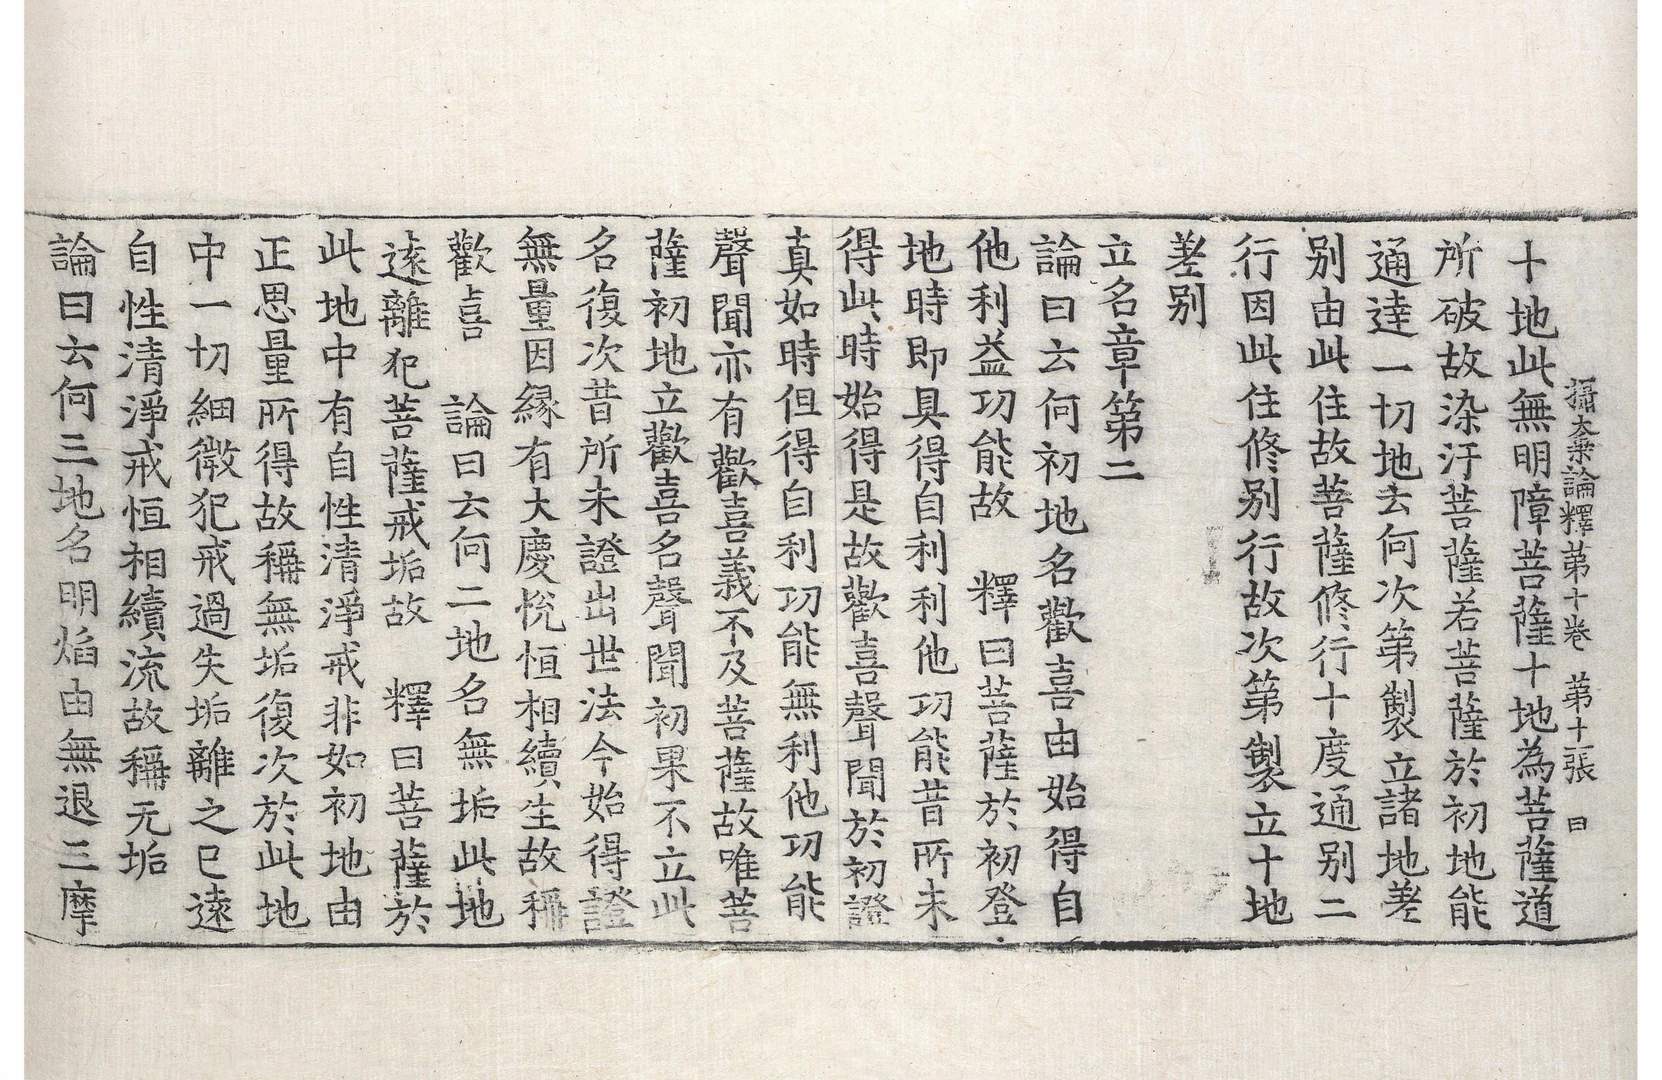 攝大乗論釋苐十卷　苐十一張　曰
十地此無明障菩薩十地為菩薩道
所破故染汙菩薩若菩薩於初地能
通達一切地去何次第製立諸地差
别由此住故菩薩修行十度通别二
行因此住修别行故次第製立十地
差别
立名章第二
論曰云何初地名歡喜由始得自
他利益功能故　釋曰菩薩於初登
地時即具得自利利他功能昔所未
得此時始得是故歡喜聲聞於初證
真如時但得自利功能無利他功能
聲聞亦有歡喜義不及菩薩故唯菩
薩初地立歡喜名聲聞初果不立此
名復次昔所未證出世法今始得證
無量因緣有大慶恱恒相續生故稱
歡喜　論曰云何二地名無垢此地
遠離犯菩薩戒垢故　釋曰菩薩於
此地中有自性清淨戒非如初地由
正思量所得故稱無垢復次於此地
中一切細微犯戒過失垢離之已遠
自性清淨戒恒相續流故稱无垢
論曰云何三地名明焰由無退三摩